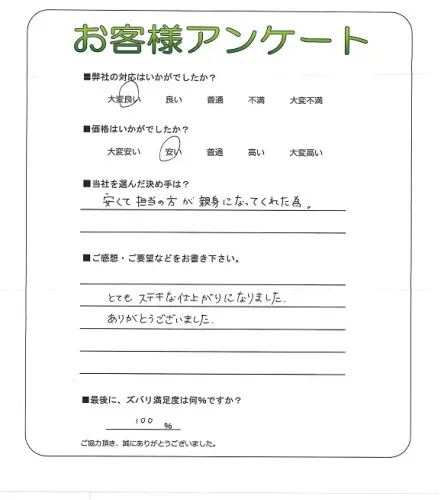 お客様アンケート
■弊社の対応はいかがでしたか?
大変良い 良い 普通 不満 大変不満
■価格はいかがでしたか?
大変安い 安い 普通 高い 大変高い
■当社を選んだ決め手は?
安くて担当の方が親身になってくれた為。
■ご感想・ご要望などをお書き下さい。
とても ステキな仕上がりになりました.
ありがとうございました.
■最後に、ズバリ満足度は何%ですか?
100 %
ご協力頂き、誠にありがとうございました。